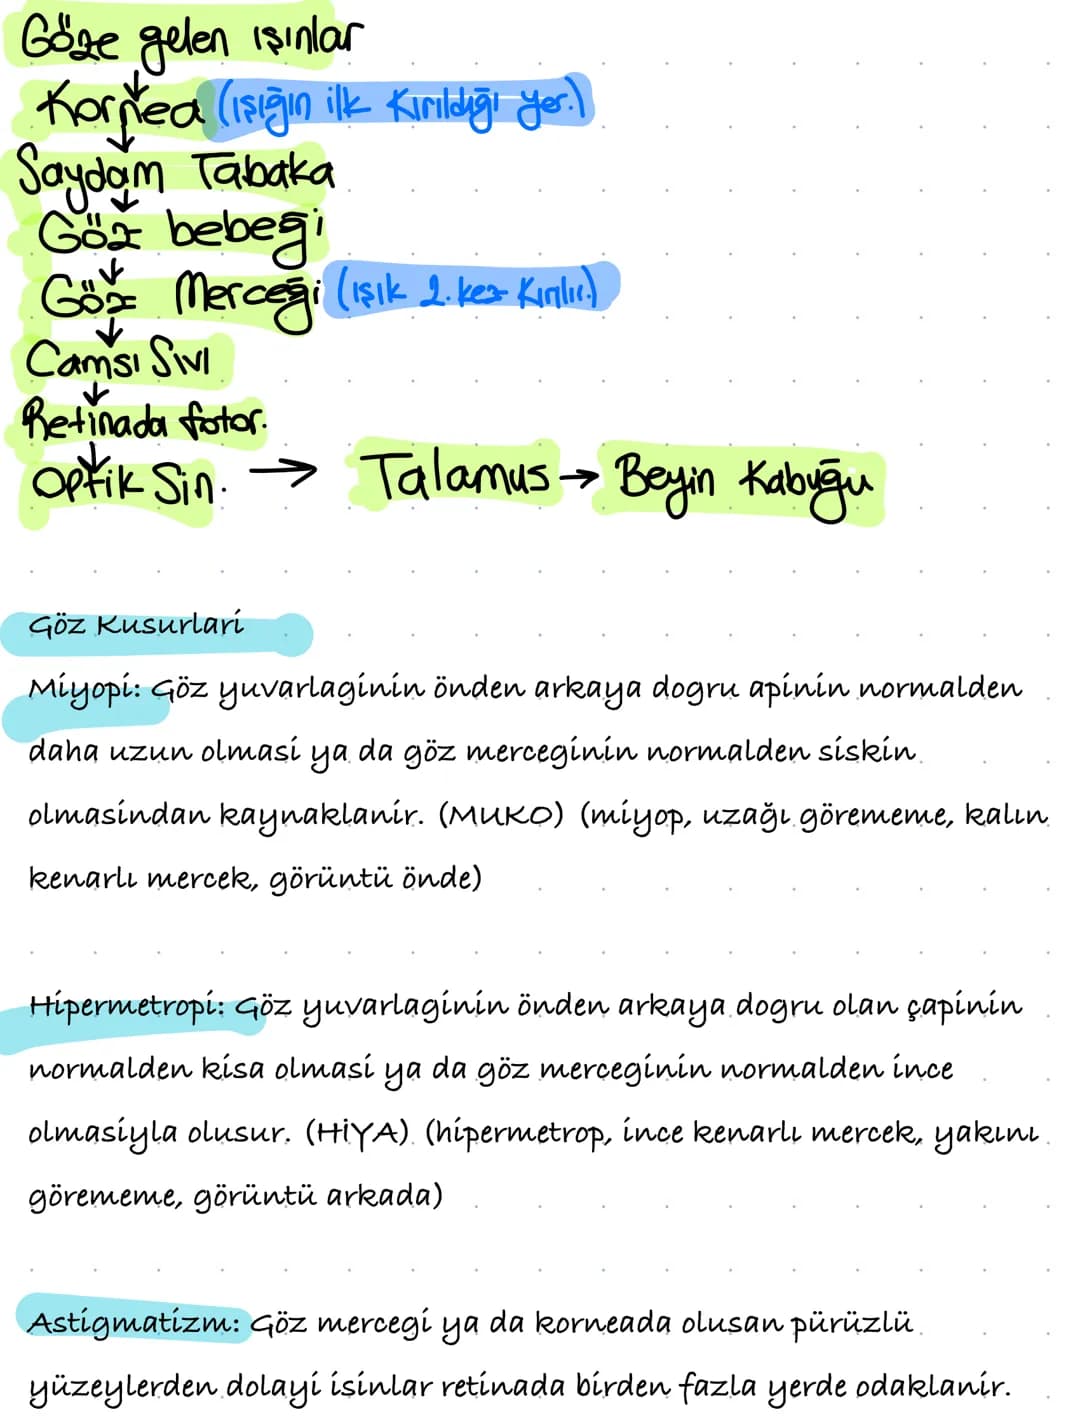 Göze gelen ışınlar
↓
Kornea (ışığın ilk kırıldığı yer.)
↓
Saydam Tabaka
↓
Göz bebeği
↓
Göz Merceği (ışık 2. kez kırılır.)
↓
Camsı Sıvı
↓
Retinada fotor.
↓
Optik Sin. → Talamus → Beyin Kabuğu
Göz Kusurlari
Miyopi: Göz yuvarlaginin önden arkaya dogru apinin normalden
daha uzun olmasi ya da göz merceginin normalden siskin
olmasindan kaynaklanir. (MUKO) (miyop, uzağı görememe, kalın
kenarlı mercek, görüntü önde)
Hipermetropi: Göz yuvarlaginin önden arkaya dogru olan çapinin
normalden kisa olmasi ya da göz merceginin normalden ince
olmasiyla olusur. (HİYA) (hipermetrop, ince kenarlı mercek, yakını
görememe, görüntü arkada)
Astigmatizm: Göz mercegi ya da korneada olusan pürüzlü
yüzeylerden dolayi isinlar retinada birden fazla yerde odaklanir.